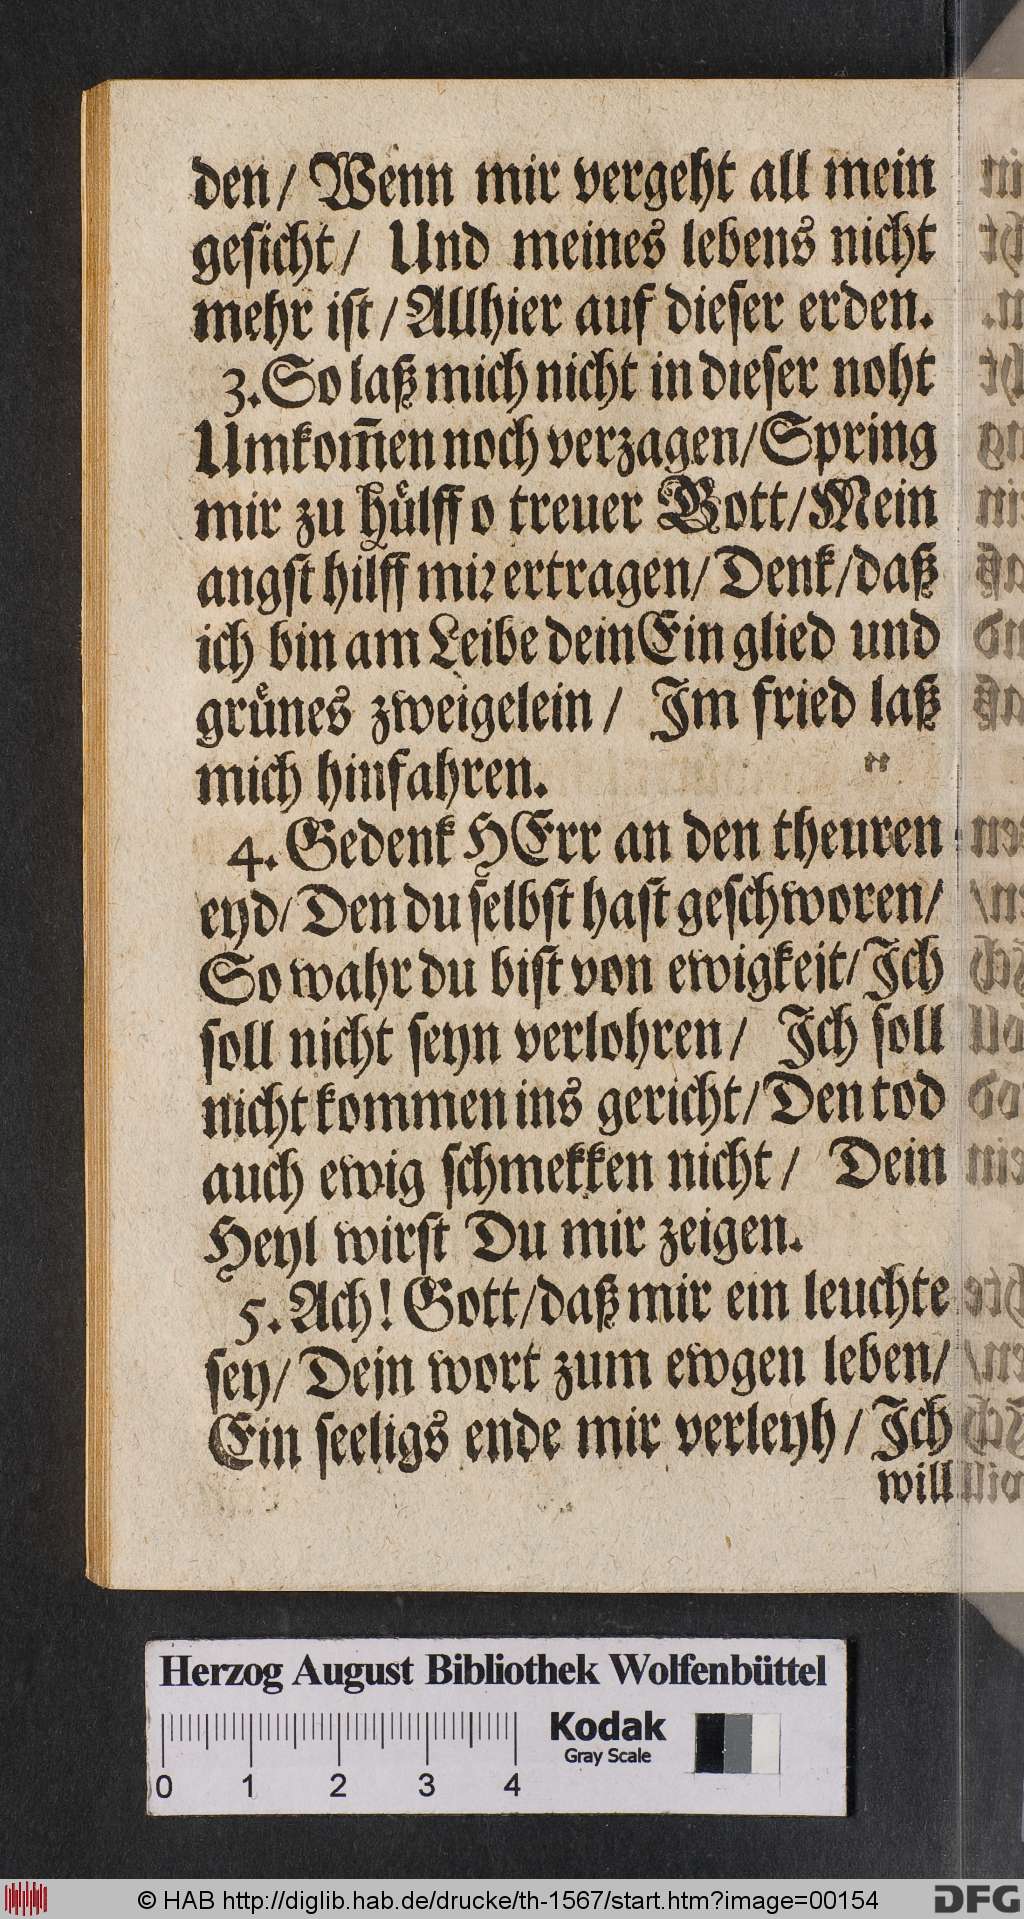 den/ Wenn mir vergeht all mein
gesicht/ Und meines lebens nicht
mehr ist/Allhier auf dieser erden.
3. So laß mich nicht in dieser noht
Umkom̃en noch verzagen/Spring
mir zu huͤlff o treuer Gott/Mein
angst hilff mir ertragen/Denk/daß
ich bin am Leibe dein Ein glied und
gruͤnes zweigelein/ Im fried laß
mich hinfahren.
4. Gedenk HErr an den theuren
eyd/Den du selbst hast geschworen/
So wahr du bist von ewigkeit/Ich
soll nicht seyn verlohren/ Ich soll
nicht kommen ins gericht/Den tod
auch ewig schmekken nicht/ Dein
Heyl wirst Du mir zeigen.
5. Ach! Gott/daß mir ein leuchte
sey/Dein wort zum ewgen leben/
Ein seeligs ende mir verleyh/Ich
will
Herzog August Bibliothek Wolfenbüttel
Kodak
Gray Scale
0 1 2 3 4
© HAB http://diglib.hab.de/drucke/th-1567/start.htm?image=00154
DFG